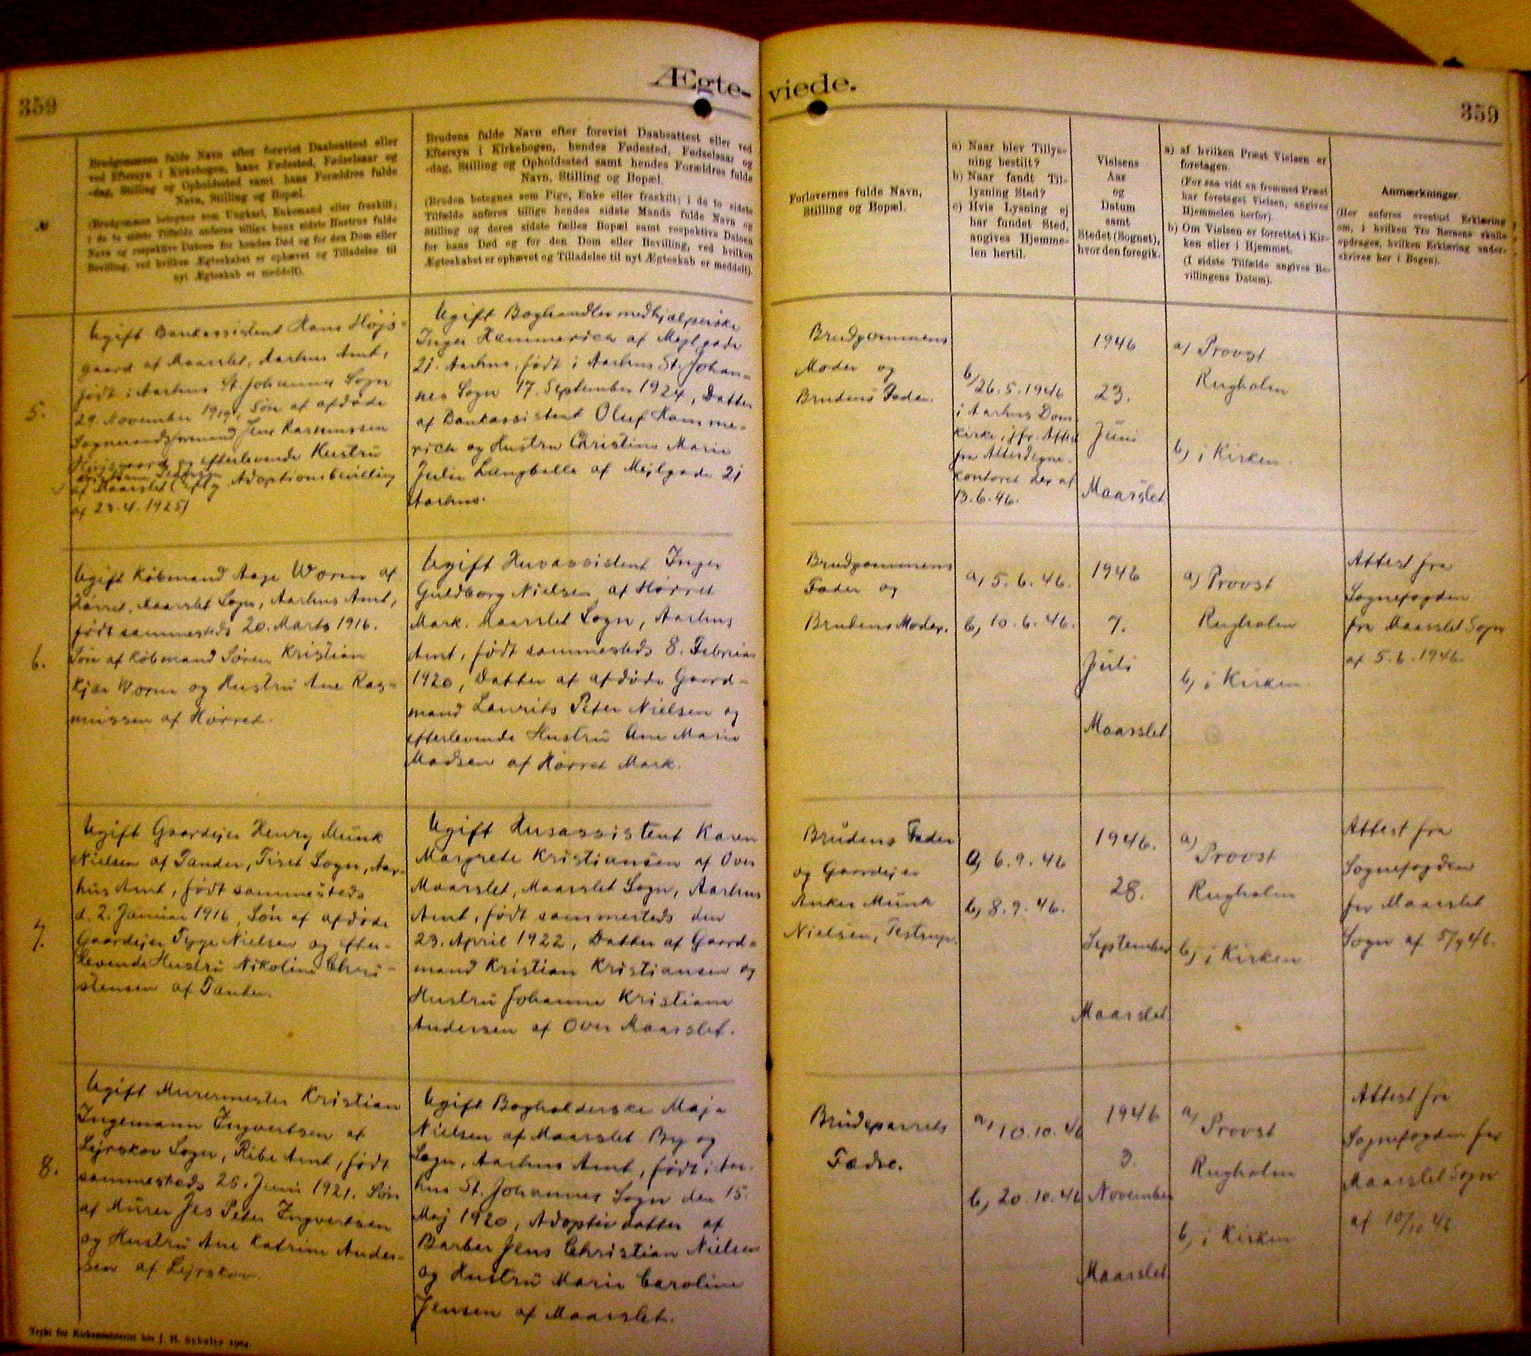 Ægte-
viede.
359
359
№
Brudgommens fulde Navn efter forevist Daabsattest eller
ved Eftersyn i Kirkebogen, hans Fødested, Fødselsaar og
-dag, Stilling og Opholdssted samt hans Forældres fulde
Navn, Stilling og Bopæl.
(Brudgommen betegnes som Ungkarl, Enkemand eller fraskilt;
i de to sidste Tilfælde anføres tillige hans sidste Hustrus fulde
Navn og respektive Datoen for hendes Død og for den Dom eller
Bevilling, ved hvilken Ægteskabet er ophævet og Tilladelse til
nyt Ægteskab er meddelt).
Brudens fulde Navn efter forevist Daabsattest eller ved
Eftersyn i Kirkebogen, hendes Fødested, Fødselsaar og
-dag, Stilling og Opholdssted samt hendes Forældres fulde
Navn, Stilling og Bopæl.
(Bruden betegnes som Pige, Enke eller fraskilt; i de to sidste
Tilfælde anføres tillige hendes sidste Mands fulde Navn og
Stilling og deres sidste fælles Bopæl samt respektive Datoen
for hans Død og for den Dom eller Bevilling, ved hvilken
Ægteskabet er ophævet og Tilladelse til nyt Ægteskab er meddelt).
Forlovernes fulde Navn,
Stilling og Bopæl.
a) Naar blev Tillys-
ning bestilt?
b) Naar fandt Til-
lysning Sted?
c) Hvis Lysning ej
har fundet Sted,
angives Hjemme-
len hertil.
Vielsens
Aar
og
Datum
samt
Stedet (Sognet),
hvor den foregik.
a) af hvilken Præst Vielsen er
foretagen.
(For saa vidt en fremmed Præst
har foretaget Vielsen, angives
Hjemmelen herfor).
b) Om Vielsen er forrettet i Kir-
ken eller i Hjemmet.
(I sidste Tilfælde angives Be-
villingens Datum).
Anmærkninger.
(Her anføres eventuel Erklæring
om, i hvilken Tro Børnene skulle
opdrages, hvilken Erklæring under-
skrives her i Bogen).
5.
Ugift Bankassistent Hans Højs-
gaard af Maarslet, Aarhus Amt,
født i Aarhus St. Johannes Sogn
29. November 1919, Søn af afdøde
Sogneraadsformand Jens Rasmussen
Højsgaard og efterlevende Hustru
af Maarslet (iflg Adoptionsbevilling
af 23.4.1925)
Ugift Boghandlermedhjælperske
Inger Hammerich af Mejlgade
21. Aarhus, født i Aarhus St. Johan-
nes Sogn 17. September 1924, Datter
af Bankassistent Oluf Hamme-
rich og Hustru Christine Marie
Julie Langballe af Mejlgade 21
Aarhus.
Brudgommens
Moder og
Brudens Fader.
b/26.5.1946
i Aarhus Dom
kirke, jfr. Attest
fra Attestdegne-
kontoret der af
13.6.46.
1946
23.
Juni
Maarslet
a) Provst
Rugholm
b) i Kirken.
6.
Ugift Købmand Aage Worm af
Hørret, Maarslet Sogn, Aarhus Amt,
født sammesteds 20. Marts 1916.
Søn af Købmand Søren Kristian
Kjær Worm og Hustru Ane Ras-
mussen af Hørret.
Ugift Husassistent Inger
Guldborg Nielsen af Hørret
Mark. Maarslet Sogn, Aarhus
Amt, født sammesteds 8. Februar
1920, Datter af afdøde Gaard-
mand Laurits Peter Nielsen og
efterlevende Hustru Ane Marie
Madsen af Hørret Mark.
Brudgommens
Fader og
Brudens Moder.
a) 5.6.46.
b) 10.6.46.
1946
7.
Juli
Maarslet
a) Provst
Rugholm
b) i Kirken.
Attest fra
Sognefogden
for Maarslet Sogn
af 5.6.1946.
7.
Ugift Gaardejer Henry Munk
Nielsen af Tander, Tiset Sogn, Aar-
hus Amt, født sammesteds
d. 2. Januar 1916, Søn af afdøde
Gaardejer Tyge Nielsen og efter-
levende Hustru Nikoline Chri-
stensen af Tander.
Ugift Husassistent Karen
Margrete Kristiansen af Over
Maarslet, Maarslet Sogn, Aarhus
Amt, født sammesteds den
23. April 1922, Datter af Gaard-
mand Kristian Kristiansen og
Hustru Johanne Kristiane
Andersen af Over Maarslet.
Brudens Fader
og Gaardejer
Anker Munk
Nielsen, Testrup.
a) 6.9.46
b) 8.9.46.
1946.
28.
September
Maarslet
a) Provst
Rugholm
b) i Kirken
Attest fra
Sognefogden
for Maarslet
Sogn af 5/9 46.
8.
Ugift Murermester Kristian
Ingemann Ingvertsen af
Lejrskov Sogn, Ribe Amt, født
sammesteds 25. Juni 1921. Søn
af Murer Jes Peter Ingvertsen
og Hustru Ane Katrine Ander-
sen af Lejrskov.
Ugift Bogholderske Maja
Nielsen af Maarslet By og
Sogn, Aarhus Amt, født i Aar-
hus St. Johannes Sogn den 15.
Maj 1920, Adoptivdatter af
Barber Jens Christian Nielsen
og Hustru Marie Caroline
Jensen af Maarslet.
Brudeparrets
Fædre.
a) 10.10.46
b) 20.10.46
1946
3.
November
Maarslet
a) Provst
Rugholm
b) i Kirken
Attest fra
Sognefogden for
Maarslet Sogn
af 10/10 46
Trykt for Kirkeministeriet hos J. H. Schultz